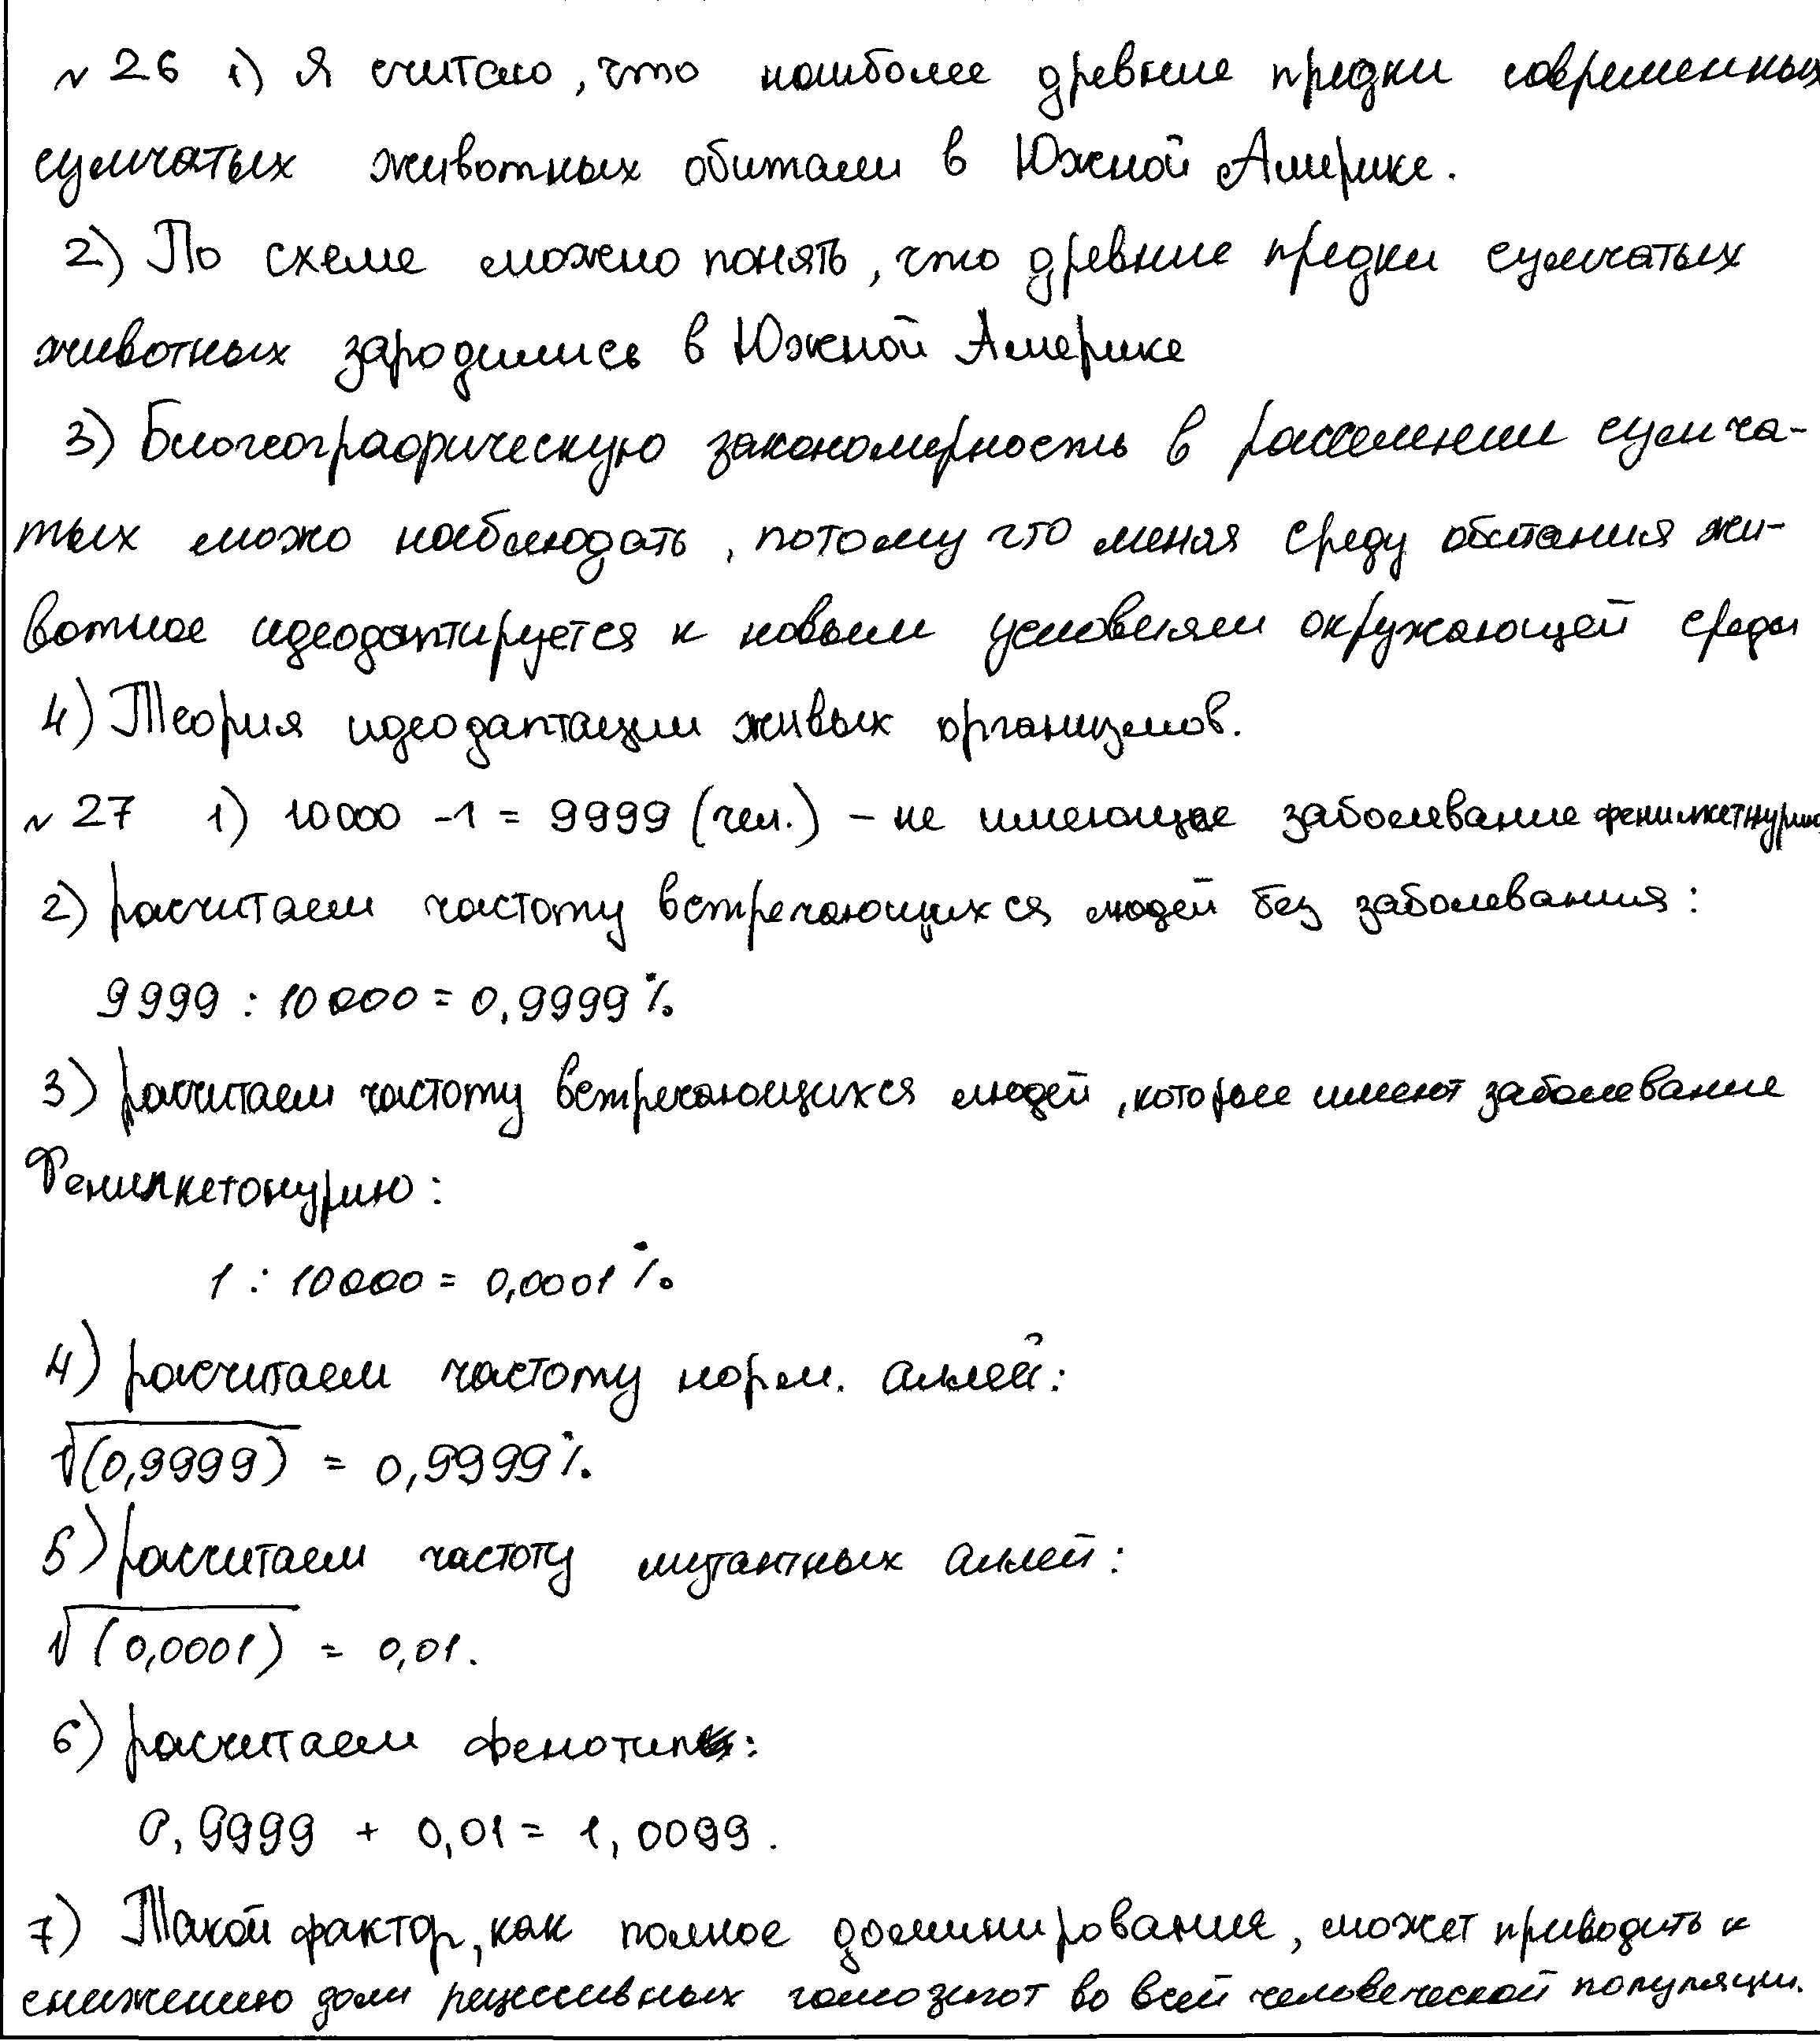 № 26 1) Я считаю, что наиболее древние предки современных
сумчатых животных обитали в Южной Америке.
2) По схеме можно понять, что древние предки сумчатых
животных зародились в Южной Америке
3) Биогеографическую закономерность в расселении сумча-
тых можо наблюдать, потому что меняя среду обитания жи-
вотное идеодаптируется к новым условиям окружающей среды
4) Теория идеодаптации живых организмов.
№ 27 1) 10000 - 1 = 9999 (чел.) - не имеющие заболевание фенилкетнурию
2) расчитаем частоту встречающихся людей без заболевания:
9999 : 10000 = 0,9999%
3) расчитаем частоту встречающихся людей, которые имеют заболевание
Фенилкетонурию:
1 : 10000 = 0,0001%
4) расчитаем частоту норм. аллей:
√(0,9999) = 0,9999%
5) расчитаем частоту мутантных аллей:
√(0,0001) = 0,01.
6) расчитаем фенотип:
0,9999 + 0,01 = 1,0099.
7) Такой фактор, как полное доминирование, может приводить к
снижению доли рецессивных гомозигот во всей человеческой популяции.